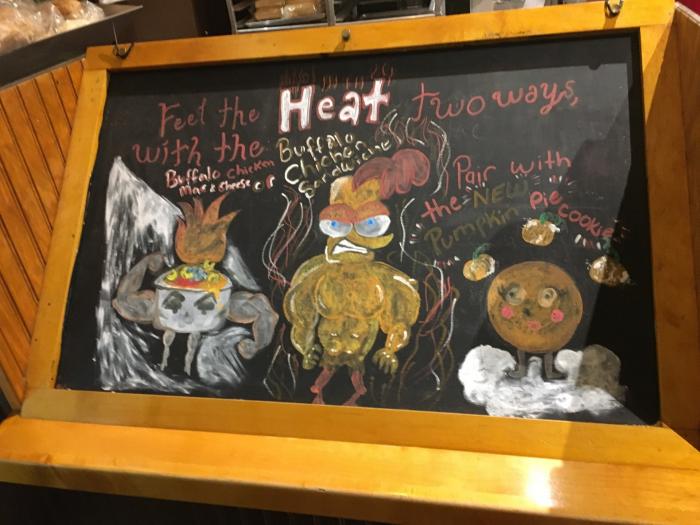 Feel the Heat two ways,
with the
Buffalo chicken
Mac & cheese or
Buffalo
Chicken
Sandwiche
Pair with
the NEW
Pumpkin pie cookie